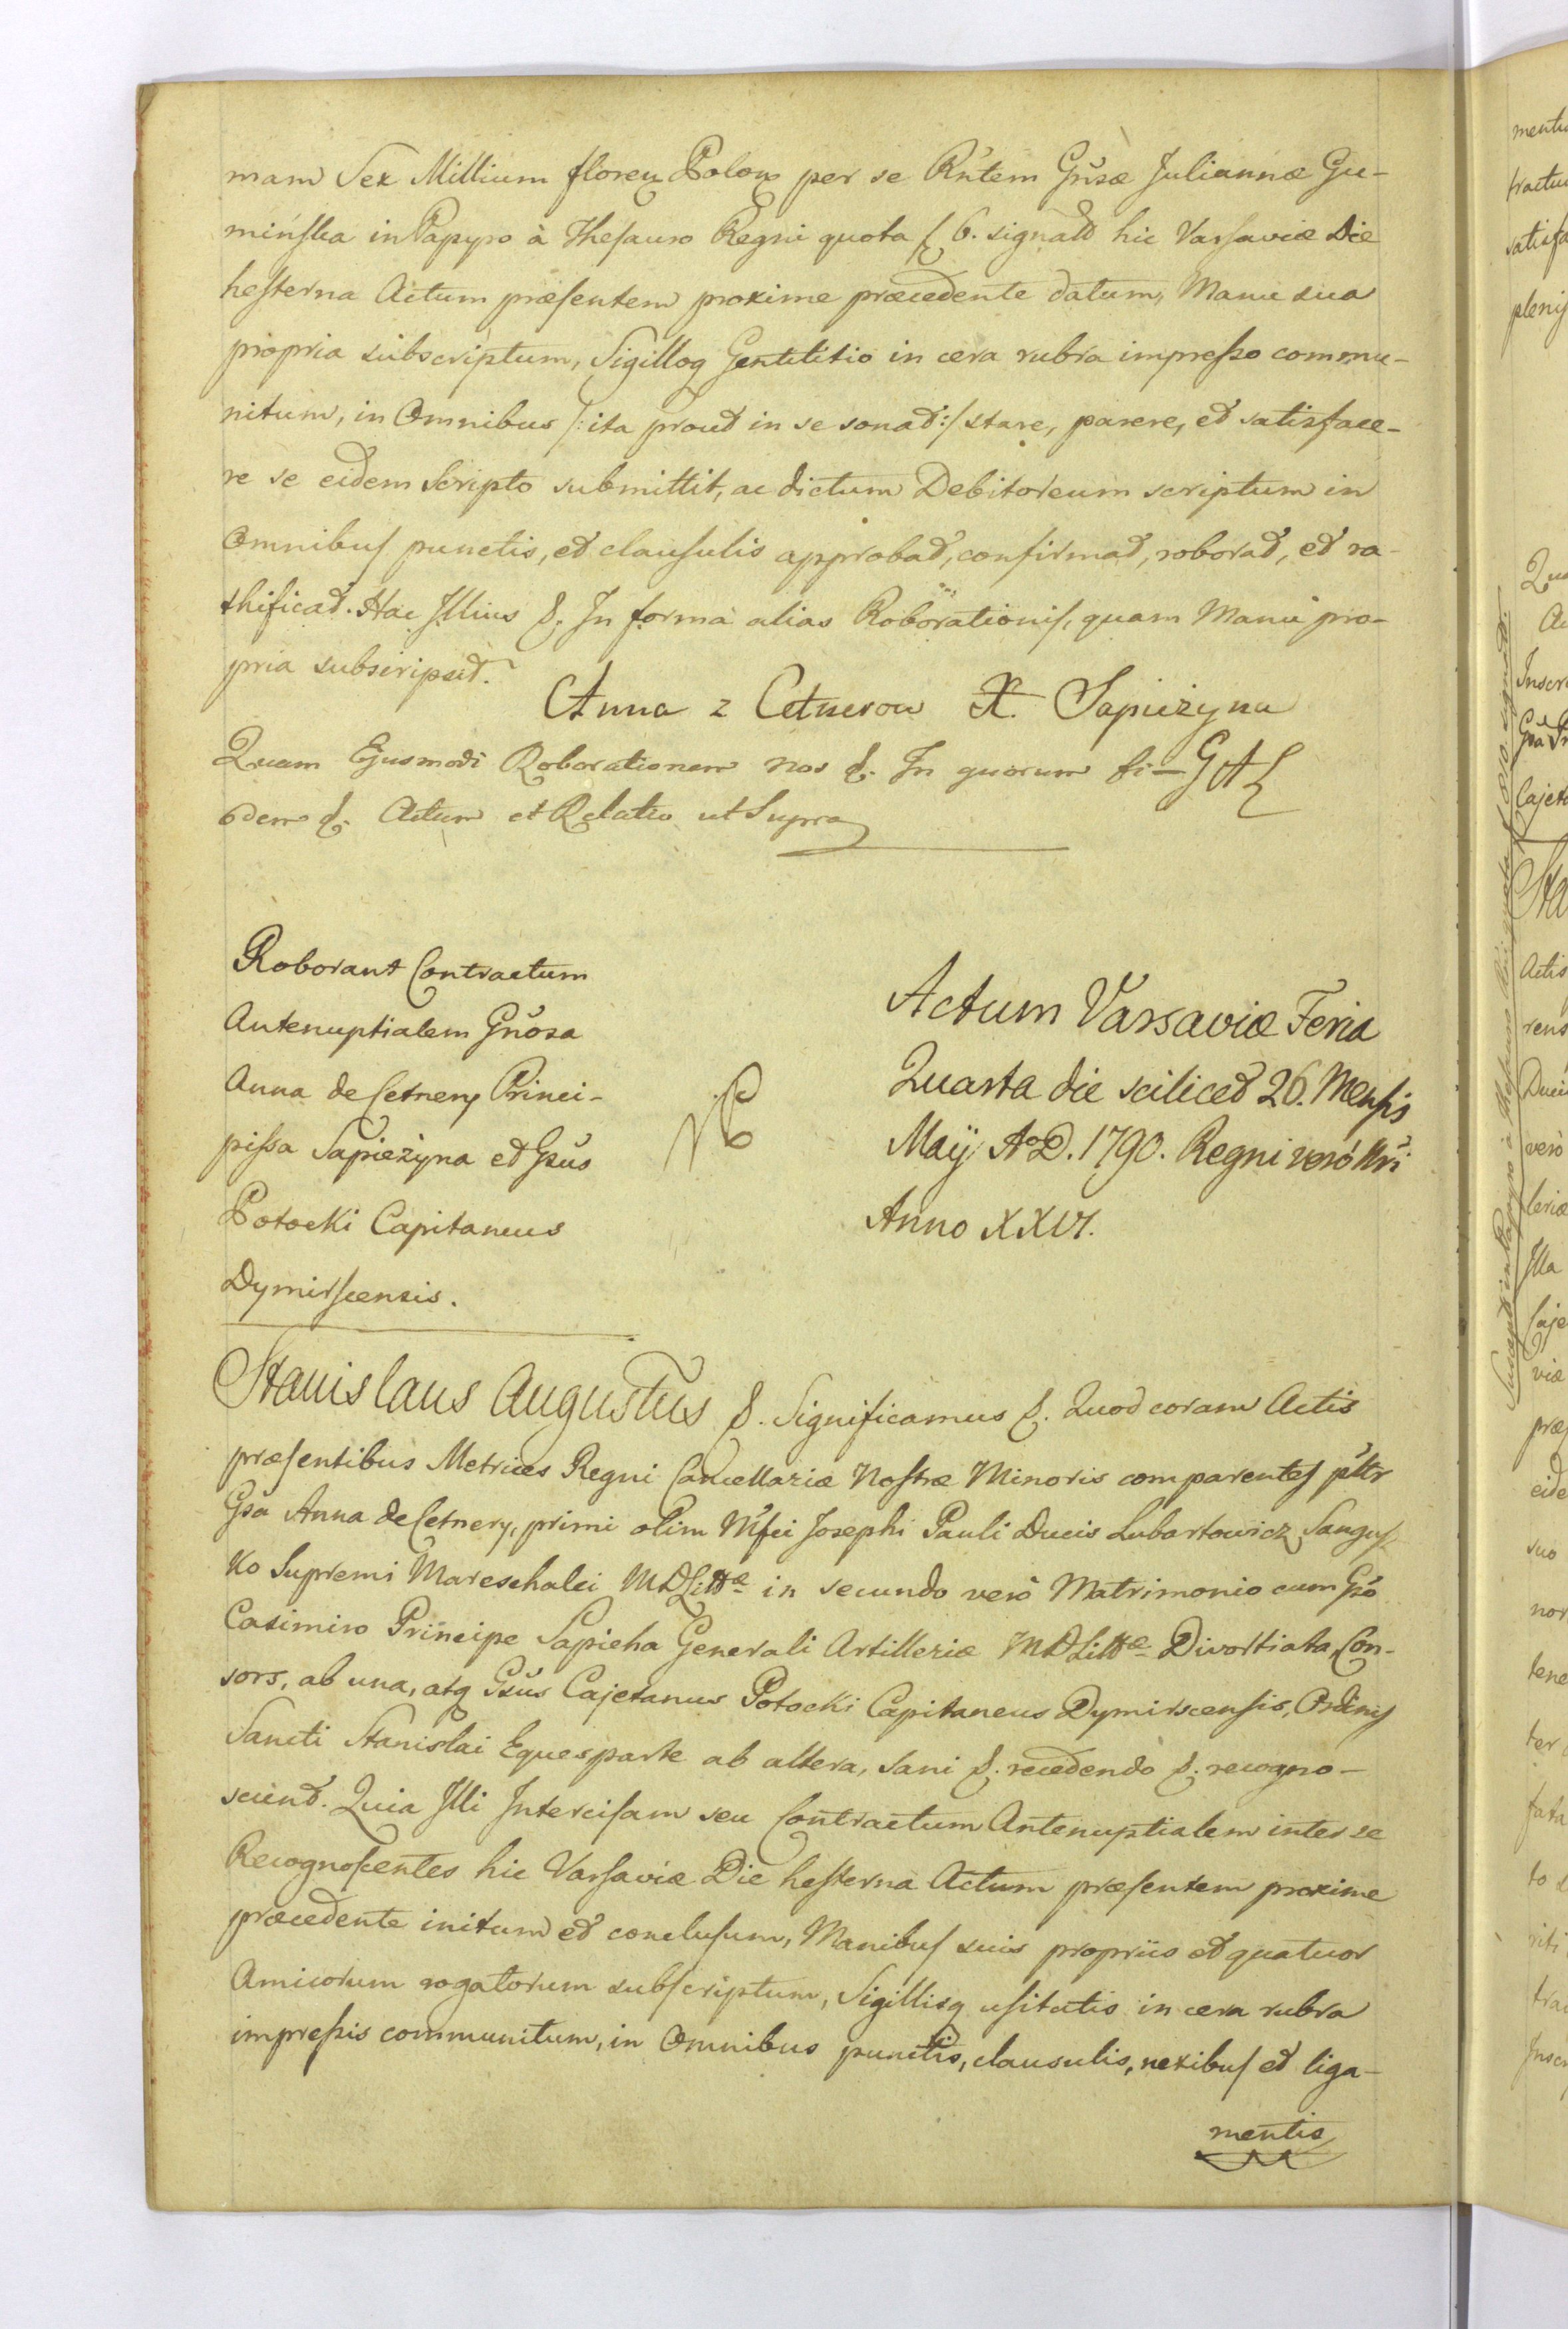 mam Sex Millium floren Polon per se Rñtem Gñsæ Juliannæ Gu-
minska in Papyro à Thesauro Regni quota f 6. signato hic Varsaviæ Die
hesterna Actum præsentem proxime præcedente datum, Manu sua
propria subscriptum, Sigilloq Gentilitio in cera rubra impresso commu-
nitum, in Omnibus /: ita prout in se sonat :/ stare, parere, et satisface-
re se eidem Scripto submittit, ac dictum Debitoreum scriptum in
Omnibus punctis, et clausulis approbat, confirmat, roborat, et ra-
thificat. Hac Illius &. In forma alias Roborationis, quam Manu pro-
pria subscripsit.
Anna z Cetnerow X. Sapieżyna
Quam Ejusmodi Roborationem nos &. In quorum fi-
dem &. Actum et Relatio ut Supra
Roborant Contractum
Antenuptialem Gñosa
Anna de Cetnery Princi-
pissa Sapieżyna et Gsus
Potocki Capitaneus
Dymirscensis.
Actum Varsaviæ Feria
Quarta die scilicet 26. Mensis
Maÿ AoD. 1790. Regni verò Nri
Anno XXVI.
Stanislaus Augustus &. Significamus &. Quod coram Actis
præsentibus Metrices Regni Cancellariæ Nostræ Minoris comparentes pltr
Gsa Anna de Cetnery, primi olim Mfci Josephi Pauli Ducis Lubartowicz Sangus
Ko Supremi Mareschalci MDLittæ in secundo verò Matrimonio cum Gso
Casimiro Principe Sapieha Generali Artilleriæ MDLittæ Divortiata Con-
sors, ab una, atq Gsus Cajetanus Potocki Capitaneus Dymirscensis, Ordinis
Sancti Stanislai Eques parte ab altera, sani &. recedendo &. recogno-
scunt. Quia Illi Intercisam seu Contractum Antenuptialem inter se
Recognoscentes hic Varsaviæ Die hesterna Actum præsentem proxime
præcedente initum et conclusum, Manibus suis propriis et quatuor
Amicorum rogatorum subscriptum, Sigillisq usitatis in cera rubra
impressis communitum, in Omnibus punctis, clausulis, nexibus et liga-
mentis